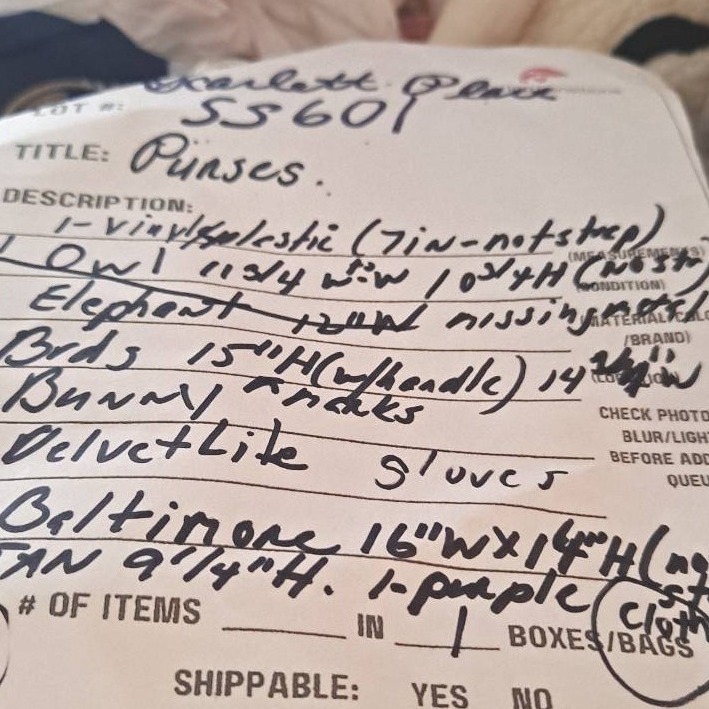 Scarlett Place
LOT #: SS601
TITLE: Purses.
DESCRIPTION:
1- vinyl/plastic (7in-not strap)
(MEASUREMENTS)
1 Owl 11 3/4 W 10 3/4 H (No st
(CONDITION)
Elephant 12"W missing
(MATERIAL/
/BRAND)
Birds 15"H (w/handle) 14
Bunny marks
CHECK PHOTO
BLUR/LIGH
Velvet Like gloves
BEFORE ADD
QUEU
Baltimore 16"W X 14"H (no
TAN 9 1/4"H. 1-purple (cloth
# OF ITEMS ____ IN 1 BOXES/BAGS
SHIPPABLE: YES NO